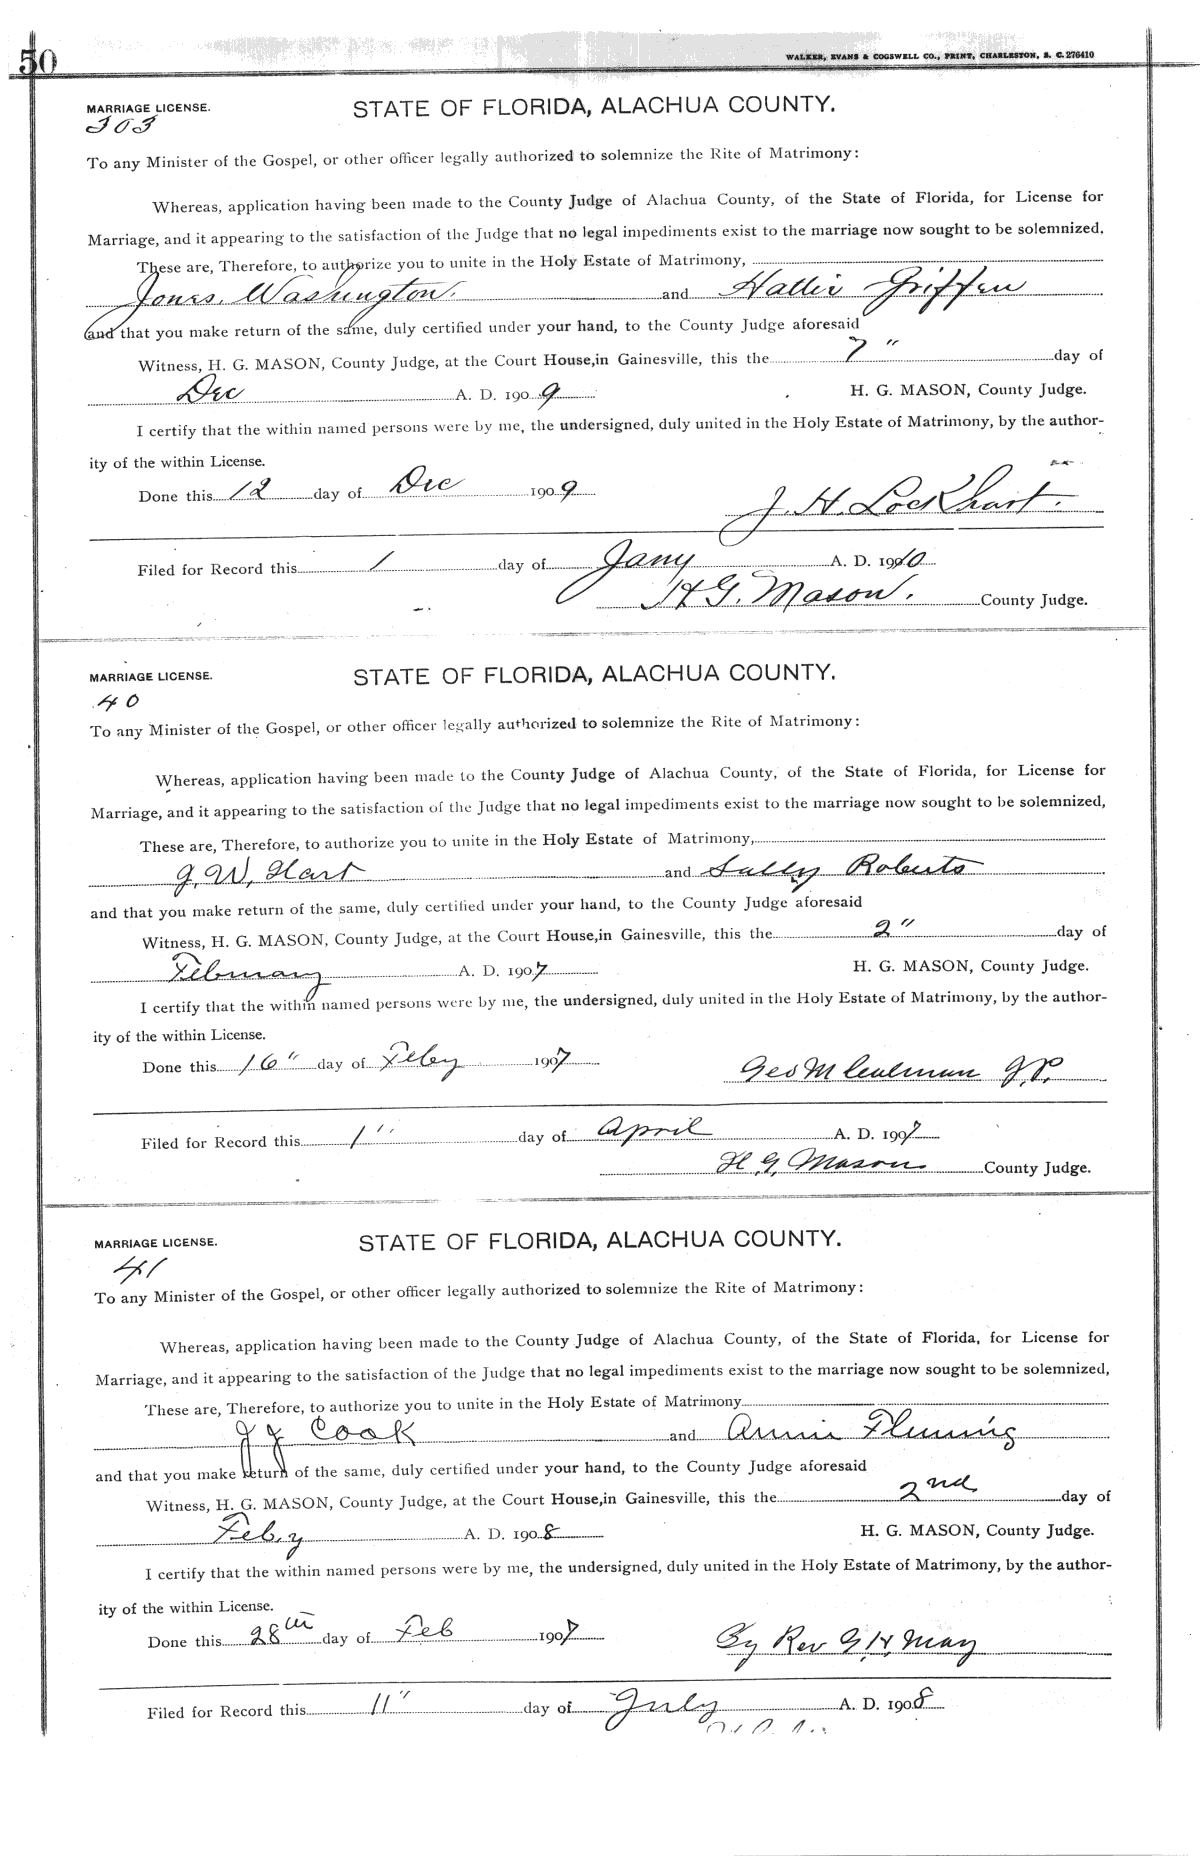 50
WALKER, EVANS & COGSWELL CO., PRINT, CHARLESTON, S. C. 276410
MARRIAGE LICENSE. STATE OF FLORIDA, ALACHUA COUNTY.
303
To any Minister of the Gospel, or other officer legally authorized to solemnize the Rite of Matrimony:
Whereas, application having been made to the County Judge of Alachua County, of the State of Florida, for License for
Marriage, and it appearing to the satisfaction of the Judge that no legal impediments exist to the marriage now sought to be solemnized,
These are, Therefore, to authorize you to unite in the Holy Estate of Matrimony,
Jones, Washington. and Hattie Griffen
and that you make return of the same, duly certified under your hand, to the County Judge aforesaid
Witness, H. G. MASON, County Judge, at the Court House, in Gainesville, this the 7" day of
Dec A. D. 1909 H. G. MASON, County Judge.
I certify that the within named persons were by me, the undersigned, duly united in the Holy Estate of Matrimony, by the author-
ity of the within License.
Done this 12 day of Dec 1909
J. H. Lockhart.
Filed for Record this 1 day of Jany A. D. 1910
H G. Mason. County Judge.
MARRIAGE LICENSE. STATE OF FLORIDA, ALACHUA COUNTY.
40
To any Minister of the Gospel, or other officer legally authorized to solemnize the Rite of Matrimony:
Whereas, application having been made to the County Judge of Alachua County, of the State of Florida, for License for
Marriage, and it appearing to the satisfaction of the Judge that no legal impediments exist to the marriage now sought to be solemnized,
These are, Therefore, to authorize you to unite in the Holy Estate of Matrimony,
J. W. Hart and Sally Roberts
and that you make return of the same, duly certified under your hand, to the County Judge aforesaid
Witness, H. G. MASON, County Judge, at the Court House, in Gainesville, this the 2" day of
February A. D. 1907 H. G. MASON, County Judge.
I certify that the within named persons were by me, the undersigned, duly united in the Holy Estate of Matrimony, by the author-
ity of the within License.
Done this 16" day of Feby 1907
Geo M J.P.
Filed for Record this 1" day of April A. D. 1907
H. G. Mason County Judge.
MARRIAGE LICENSE. STATE OF FLORIDA, ALACHUA COUNTY.
41
To any Minister of the Gospel, or other officer legally authorized to solemnize the Rite of Matrimony:
Whereas, application having been made to the County Judge of Alachua County, of the State of Florida, for License for
Marriage, and it appearing to the satisfaction of the Judge that no legal impediments exist to the marriage now sought to be solemnized,
These are, Therefore, to authorize you to unite in the Holy Estate of Matrimony
J J Cook and Annie Fleming
and that you make return of the same, duly certified under your hand, to the County Judge aforesaid
Witness, H. G. MASON, County Judge, at the Court House, in Gainesville, this the 2nd day of
Feb.y A. D. 1908 H. G. MASON, County Judge.
I certify that the within named persons were by me, the undersigned, duly united in the Holy Estate of Matrimony, by the author-
ity of the within License.
Done this 28th day of Feb 1907
By Rev G. H. May
Filed for Record this 11" day of July A. D. 1908